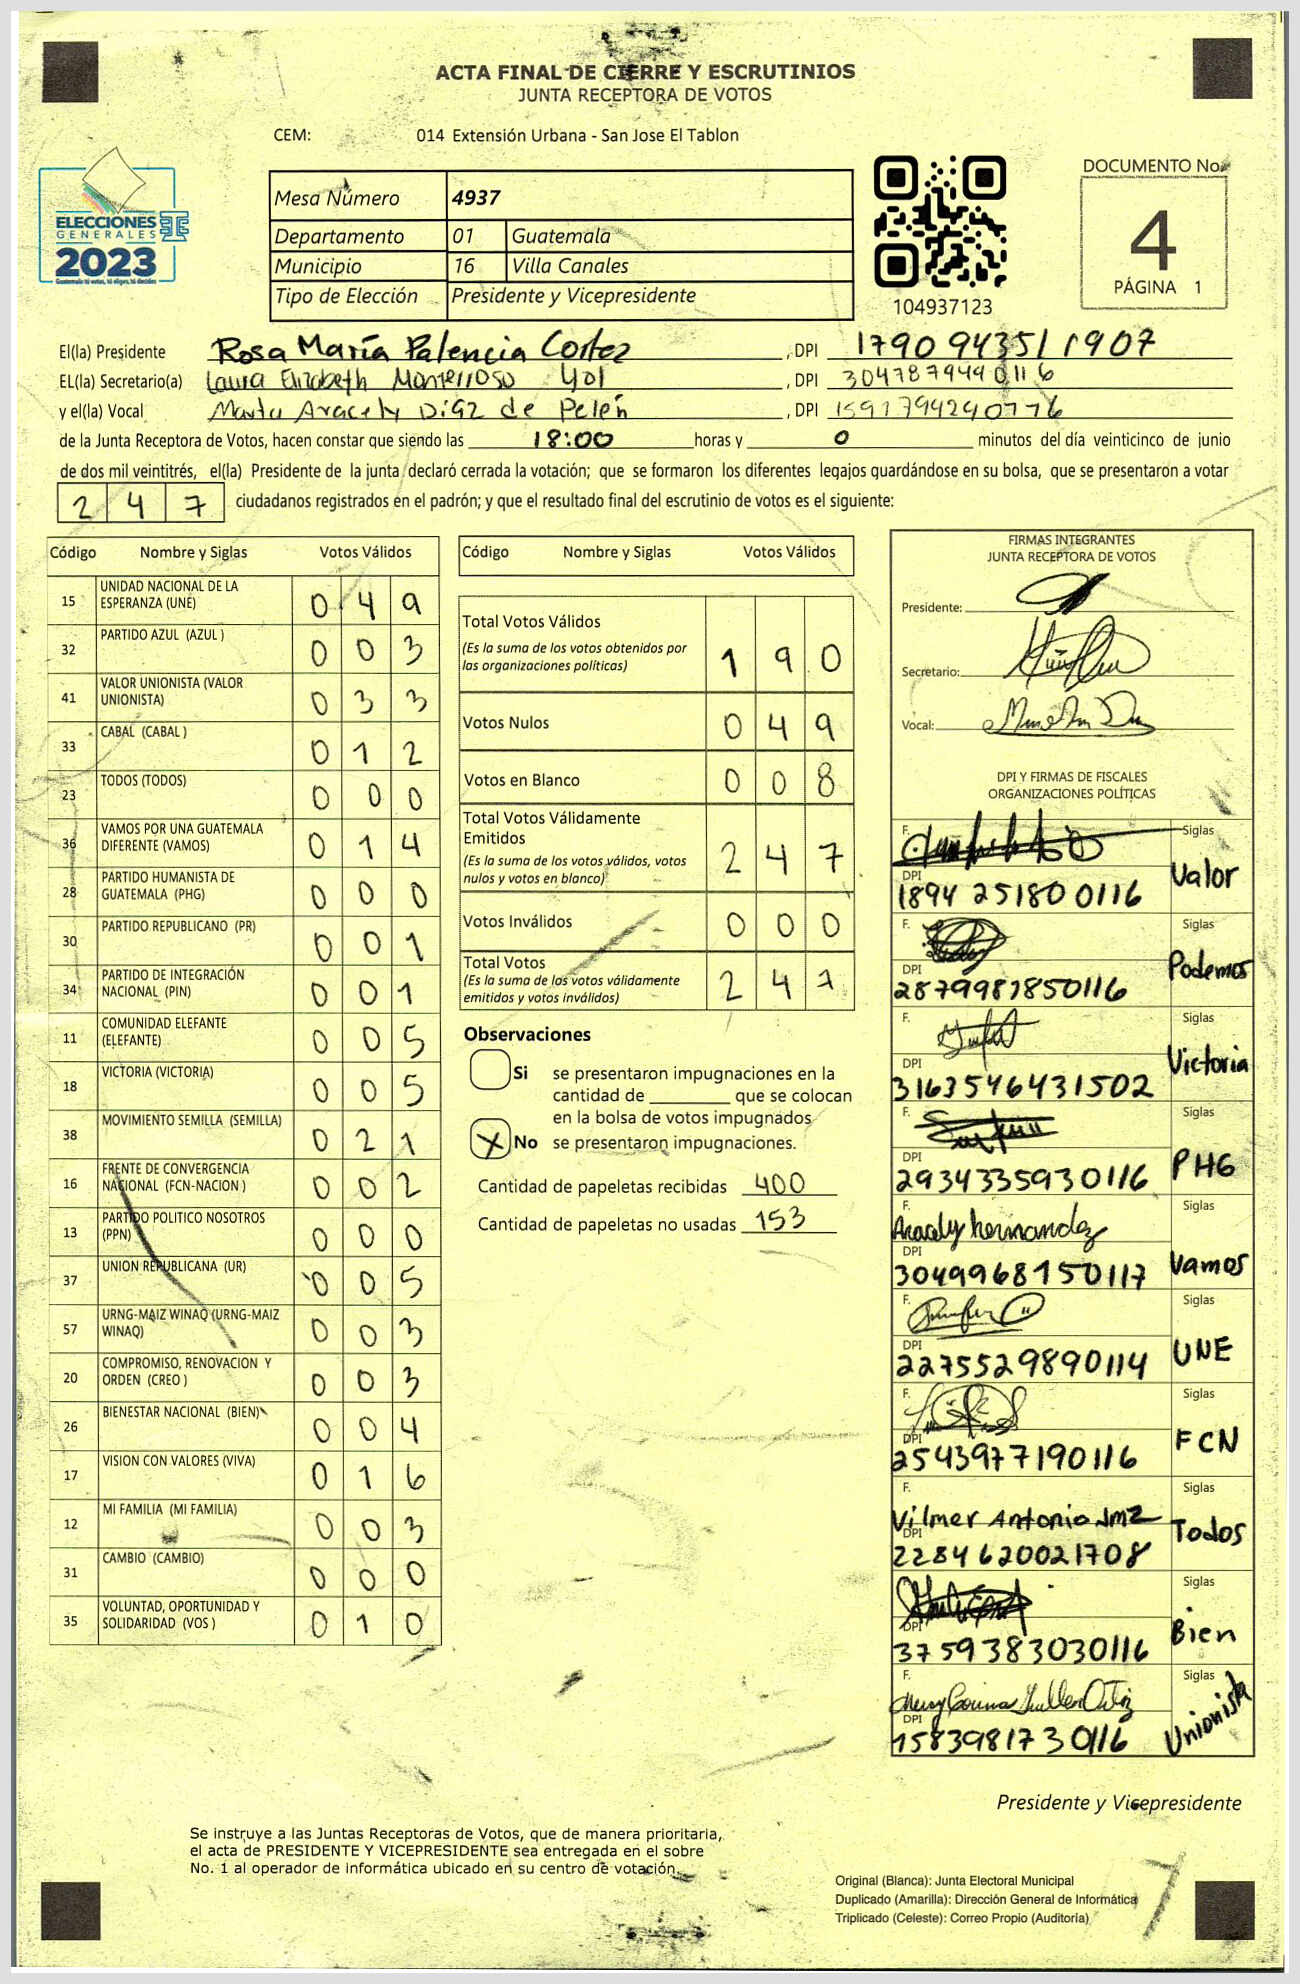 ACTA FINAL DE CIERRE Y ESCRUTINIOS
JUNTA RECEPTORA DE VOTOS
CEM: 014 Extensión Urbana - San Jose El Tablon
ELECCIONES
GENERALES
2023
Mesa Número 4937
Departamento 01 Guatemala
Municipio 16 Villa Canales
Tipo de Elección Presidente y Vicepresidente
104937123
DOCUMENTO No.
4
PÁGINA 1
El(la) Presidente Rosa María Palencia Cortez, DPI 1790 94351 1907
EL(la) Secretario(a) Laura Elizabeth Monterroso Yol, DPI 3047879490116
y el(la) Vocal Marta Aracely Díaz de Pelén, DPI 1591794240776
de la Junta Receptora de Votos, hacen constar que siendo las 18:00 horas y 0 minutos del día veinticinco de junio
de dos mil veintitrés, el(la) Presidente de la junta declaró cerrada la votación; que se formaron los diferentes legajos guardándose en su bolsa, que se presentaron a votar
247 ciudadanos registrados en el padrón; y que el resultado final del escrutinio de votos es el siguiente:
Código Nombre y Siglas Votos Válidos
15 UNIDAD NACIONAL DE LA ESPERANZA (UNE) 049
32 PARTIDO AZUL (AZUL ) 003
41 VALOR UNIONISTA (VALOR UNIONISTA) 033
33 CABAL (CABAL ) 012
23 TODOS (TODOS) 000
36 VAMOS POR UNA GUATEMALA DIFERENTE (VAMOS) 014
28 PARTIDO HUMANISTA DE GUATEMALA (PHG) 000
30 PARTIDO REPUBLICANO (PR) 001
34 PARTIDO DE INTEGRACIÓN NACIONAL (PIN) 001
11 COMUNIDAD ELEFANTE (ELEFANTE) 005
18 VICTORIA (VICTORIA) 005
38 MOVIMIENTO SEMILLA (SEMILLA) 021
16 FRENTE DE CONVERGENCIA NACIONAL (FCN-NACION ) 002
13 PARTIDO POLITICO NOSOTROS (PPN) 000
37 UNION REPUBLICANA (UR) 005
57 URNG-MAIZ WINAQ (URNG-MAIZ WINAQ) 003
20 COMPROMISO, RENOVACION Y ORDEN (CREO ) 003
26 BIENESTAR NACIONAL (BIEN) 004
17 VISION CON VALORES (VIVA) 016
12 MI FAMILIA (MI FAMILIA) 003
31 CAMBIO (CAMBIO) 000
35 VOLUNTAD, OPORTUNIDAD Y SOLIDARIDAD (VOS ) 010
Código Nombre y Siglas Votos Válidos
Total Votos Válidos
(Es la suma de los votos obtenidos por
las organizaciones políticas) 190
Votos Nulos 049
Votos en Blanco 008
Total Votos Válidamente
Emitidos
(Es la suma de los votos válidos, votos
nulos y votos en blanco) 247
Votos Inválidos 000
Total Votos
(Es la suma de los votos válidamente
emitidos y votos inválidos) 247
Observaciones
Si se presentaron impugnaciones en la
cantidad de ________ que se colocan
en la bolsa de votos impugnados
X No se presentaron impugnaciones.
Cantidad de papeletas recibidas 400
Cantidad de papeletas no usadas 153
FIRMAS INTEGRANTES
JUNTA RECEPTORA DE VOTOS
Presidente:
Secretario:
Vocal:
DPI Y FIRMAS DE FISCALES
ORGANIZACIONES POLÍTICAS
F. Siglas
DPI 1894 251800116 Valor
F. Siglas
DPI 2879981850116 Podemos
F. Siglas
DPI 3163546431502 Victoria
F. Siglas
DPI 2934335930116 PHG
F. Aracely hernandez Siglas
DPI 3049968150117 Vamos
F. Siglas
DPI 2275529890114 UNE
F. Siglas
DPI 2543977190116 FCN
F. Vilmer Antonio Jmz Siglas
DPI 2284620021708 Todos
F. Siglas
DPI 3759383030116 Bien
F. Siglas
DPI 1583981730116 Unionista
Presidente y Vicepresidente
Se instruye a las Juntas Receptoras de Votos, que de manera prioritaria,
el acta de PRESIDENTE Y VICEPRESIDENTE sea entregada en el sobre
No. 1 al operador de informática ubicado en su centro de votación.
Original (Blanca): Junta Electoral Municipal
Duplicado (Amarilla): Dirección General de Informática
Triplicado (Celeste): Correo Propio (Auditoría)